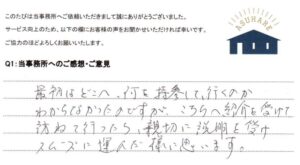 このたびは当事務所へご依頼いただきまして誠にありがとうございました。
サービス向上のため、以下の欄にお客様の声をお聞かせいただければ幸いです。
ご協力のほどよろしくお願いいたします。
ASUNARE
Q1：当事務所へのご感想・ご意見
最初はどこへ、何を持参して、行くのか
わからなかったのですが、こちらへ紹介を受けて
訪ねて行ったら、親切に説明を受け
スムーズに運んだ様に思います。